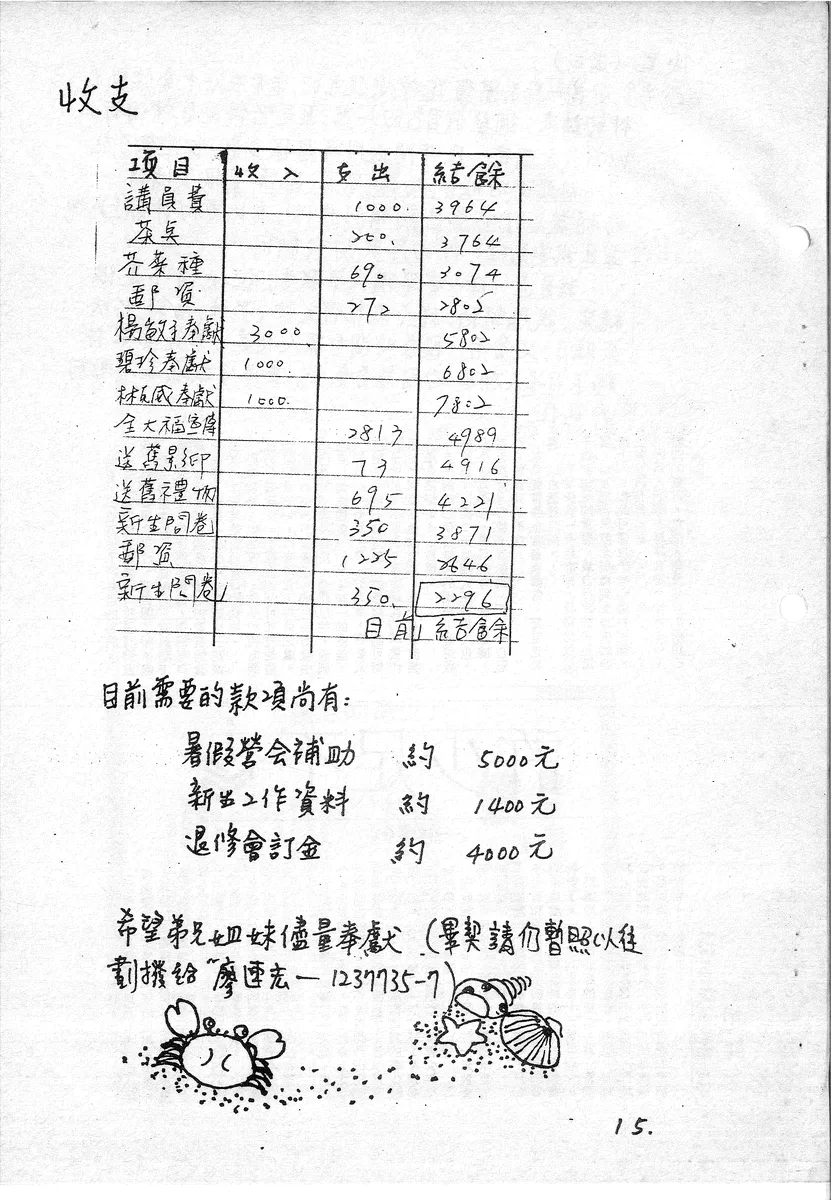 收支
項目 收入 支出 結餘
講員費 1000. 3964
茶点 200. 3764
芥菜種 690 3074
郵資 272 2802
楊敏 奉獻 3000 5802
碧珍奉獻 1000. 6802
林 威奉獻 1000. 7802
全大福 2813 4989
送舊影印 73 4916
送舊禮物 695 4221
新生問卷 350 3871
郵資 1225 2646
新生問卷 350. 2296
目前結餘
目前需要的款項尚有:
暑假營会補助 約 5000元
新生工作資料 約 1400元
退修會訂金 約 4000元
希望弟兄姐妹儘量奉獻 (畢契請仍暫照以往
劃撥給"廖連 — 1237735-7)
15.